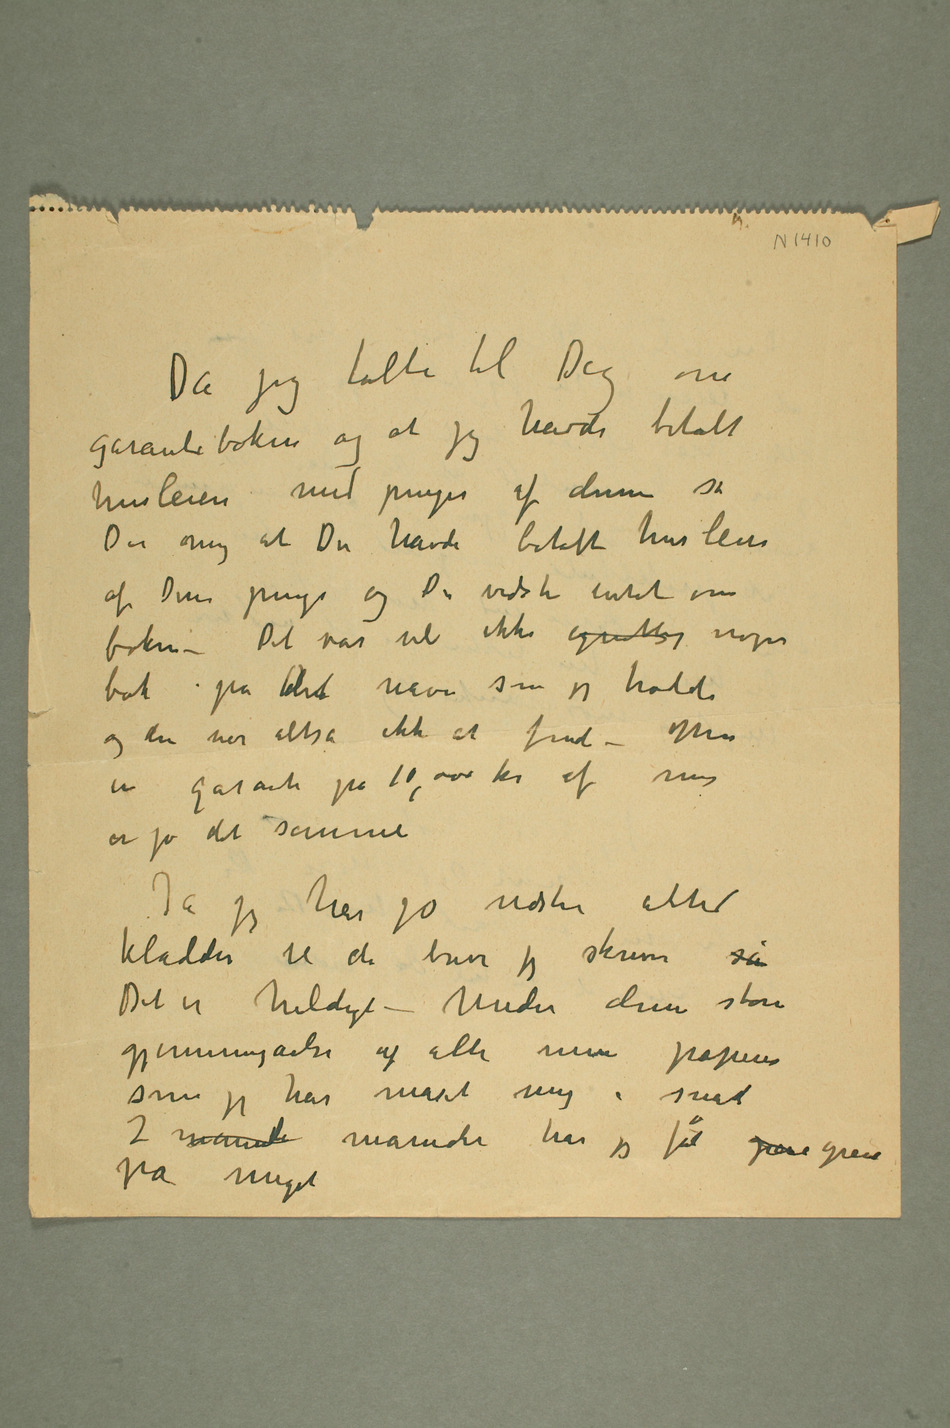 N 1410
Da jeg talte til Dig om
garantiboken og at jeg havde betalt
husleien med penge af denne sa
Du mig at Du havde betalt husleie
af Dine penge og Du vidste intet om
boken – Det var vel ikke nogen
bok på det navn som jeg trodde
og den var altså ikke at finde – Men
en garanti på 10,000 kr af mig
er jo det samme
Ja jeg har jo næsten altid
kladder til de breve jeg skriver så
Det er heldigt – Under denne store
gjennemgåelse af alle mine papirer
som jeg har maset mig i snart
2 månede måneder har jeg fåt greie greie
på meget